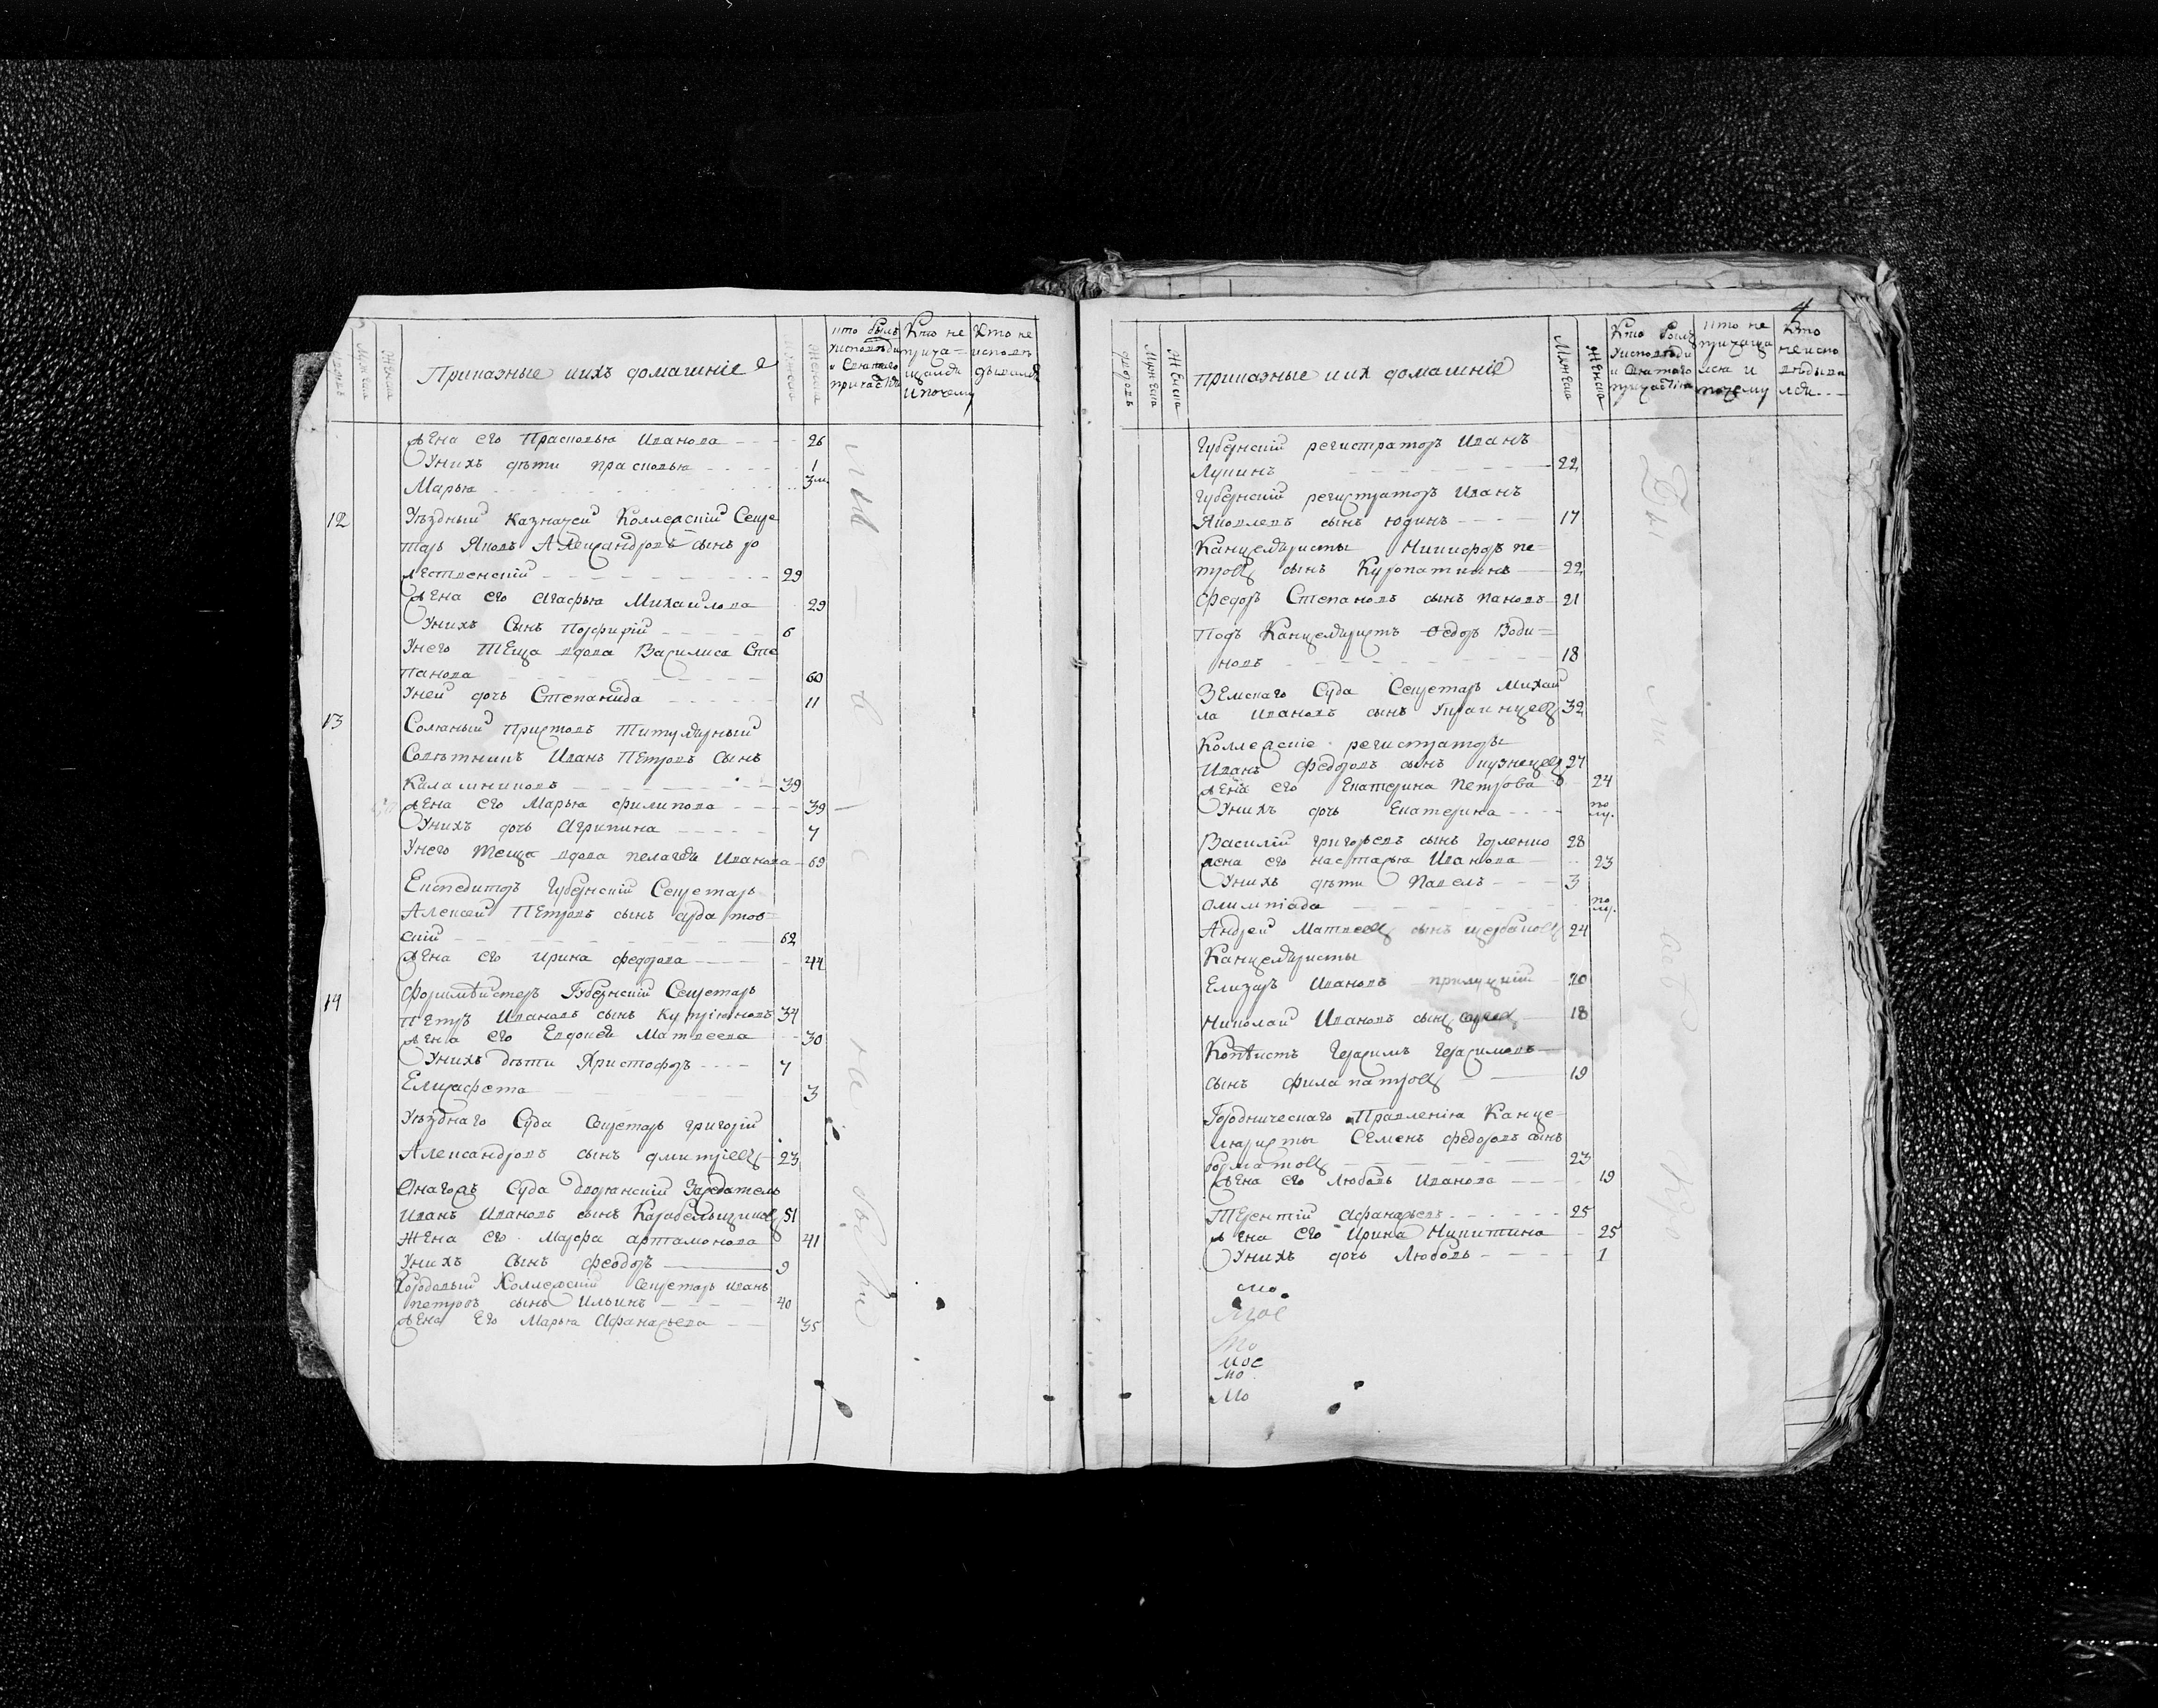 Приказные ихъ домашніе
дворовъ
Мужеска
Женска
Мужеска
Женска
кто былъ
уисповѣди
и Святаго
причастія
Кто не
прича=
щался
и почему
Кто не
исповѣ
дывался
жена его Прасковья Иванова 26
Унихъ дѣти прасковья 1
Марья 3 м.
12 Уѣздный казначей Коллежскій Секре
тарь Яковъ Александровъ сынъ ро
29
жена его Агафья Михаилова 29
Унихъ Сынъ Порфирій 6
Унего Теща вдова Василиса Сте
панова 60
Уней дочь Степанида 11
13 Соляный приставъ Титулярный
Совѣтникъ Иванъ Петровъ Сынъ
Калашниковъ 39
жена его Марья филипова 39
Унихъ дочь Агрипина 7
Унего теща вдова пелагея Иванова 69
Експедиторъ Губернскій Секретарь
Алексей Петровъ сынъ
скій 62
жена его ирина федорова 44
14 форшмѣистеръ Губернскій Секретарь
Петръ Ивановъ сынъ 34
жена его Евдокея Матвеева 30
Унихъ дѣти Христофоръ 7
Елисафета 3
Уѣзднаго Суда Секретарь григорій
Александровъ сынъ дмитріевъ 23
Онагожъ Суда дворянскій Заседатель
Иванъ Ивановъ сынъ 51
Жена его Марфа артамонова 41
Унихъ Сынъ феодоръ 9
Коллежскій Секретарь иванъ
петровъ сынъ Ильинъ 40
жена Его Марья Афанасьева 35
4
приказные иих домашніе
дворовъ
Мужеска
Женска
Мужеска
Женска
Кто былъ
уисповѣди
и Святаго
причастія
кто не
причаща
лся и
почему
Кто
не испо
вѣдыва
лся
Губернскій регистраторъ Иванъ
Лунинъ 22
Губернскій регистраторъ Иванъ
Яковлевъ сынъ юдинъ 17
Канцеляристы Никифоръ пе=
тровъ сынъ Куропаткинъ 22
Федоръ Степановъ сынъ пановъ 21
Подъ Канцеляристъ Ѳедоръ Води=
новъ 18
Земскаго Суда Секретарь михаи
ла Ивановъ сынъ Украинцевъ 32
Коллежскіе регистраторы
Иванъ Федоровъ сынъ кузнецевъ 27
жена его Екатерина Петрова 24
Унихъ дочь Екатерина по лу.
Василій григорьевъ сынъ горленко 28
жена его настасья Иванова 23
Унихъ дѣти Павелъ 3
олимпіада по лу.
Андрей Матвеевъ сынъ щербаковъ 24
Канцеляристы
Елизаръ Ивановъ прилуцкій 20
Николай Ивановъ сынъ 18
Копѣистъ Герасимъ Герасимовъ
сынъ филапатровъ 19
Городническаго Правленія Канце=
ляристы Семенъ федоровъ сынъ
23
жена его Любовь Иванова 19
Терентій Афанасьевъ 25
жена его Ирина Никитина 25
Унихъ дочь Любовь 1
мо
мо
мос
мо
мо